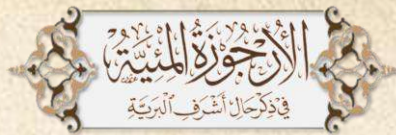 الأُرْجُوزَةُ الْمِئِيَّةُ
فِي ذِكْرِ حَالِ أَشْرَفِ الْبَرِيَّةِ